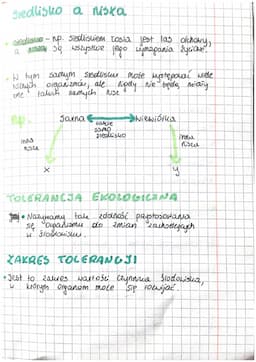 siedlisko a nisza
siedlisko - np. siedliskiem łosia jest las olchowy,
a niszą są wszystkie jego wymagania życiowe.
W tym samym siedlisku może występować wiele
różnych organizmów, ale nigdy nie będą miały
takich samych nisz!
np.
Sarna Wiewiórka
takie
samo
siedlisko
inna
nisza
inna
nisza
x y
TOLERANCJA EKOLOGICZNA
Nazywamy tak zdolność przystosowania
się organizmu do zmian zachodzących
w środowisku.
ZAKRES TOLERANCJI
Jest to zakres wartości czynnika środowiska,
w którym organizm może się rozwijać.